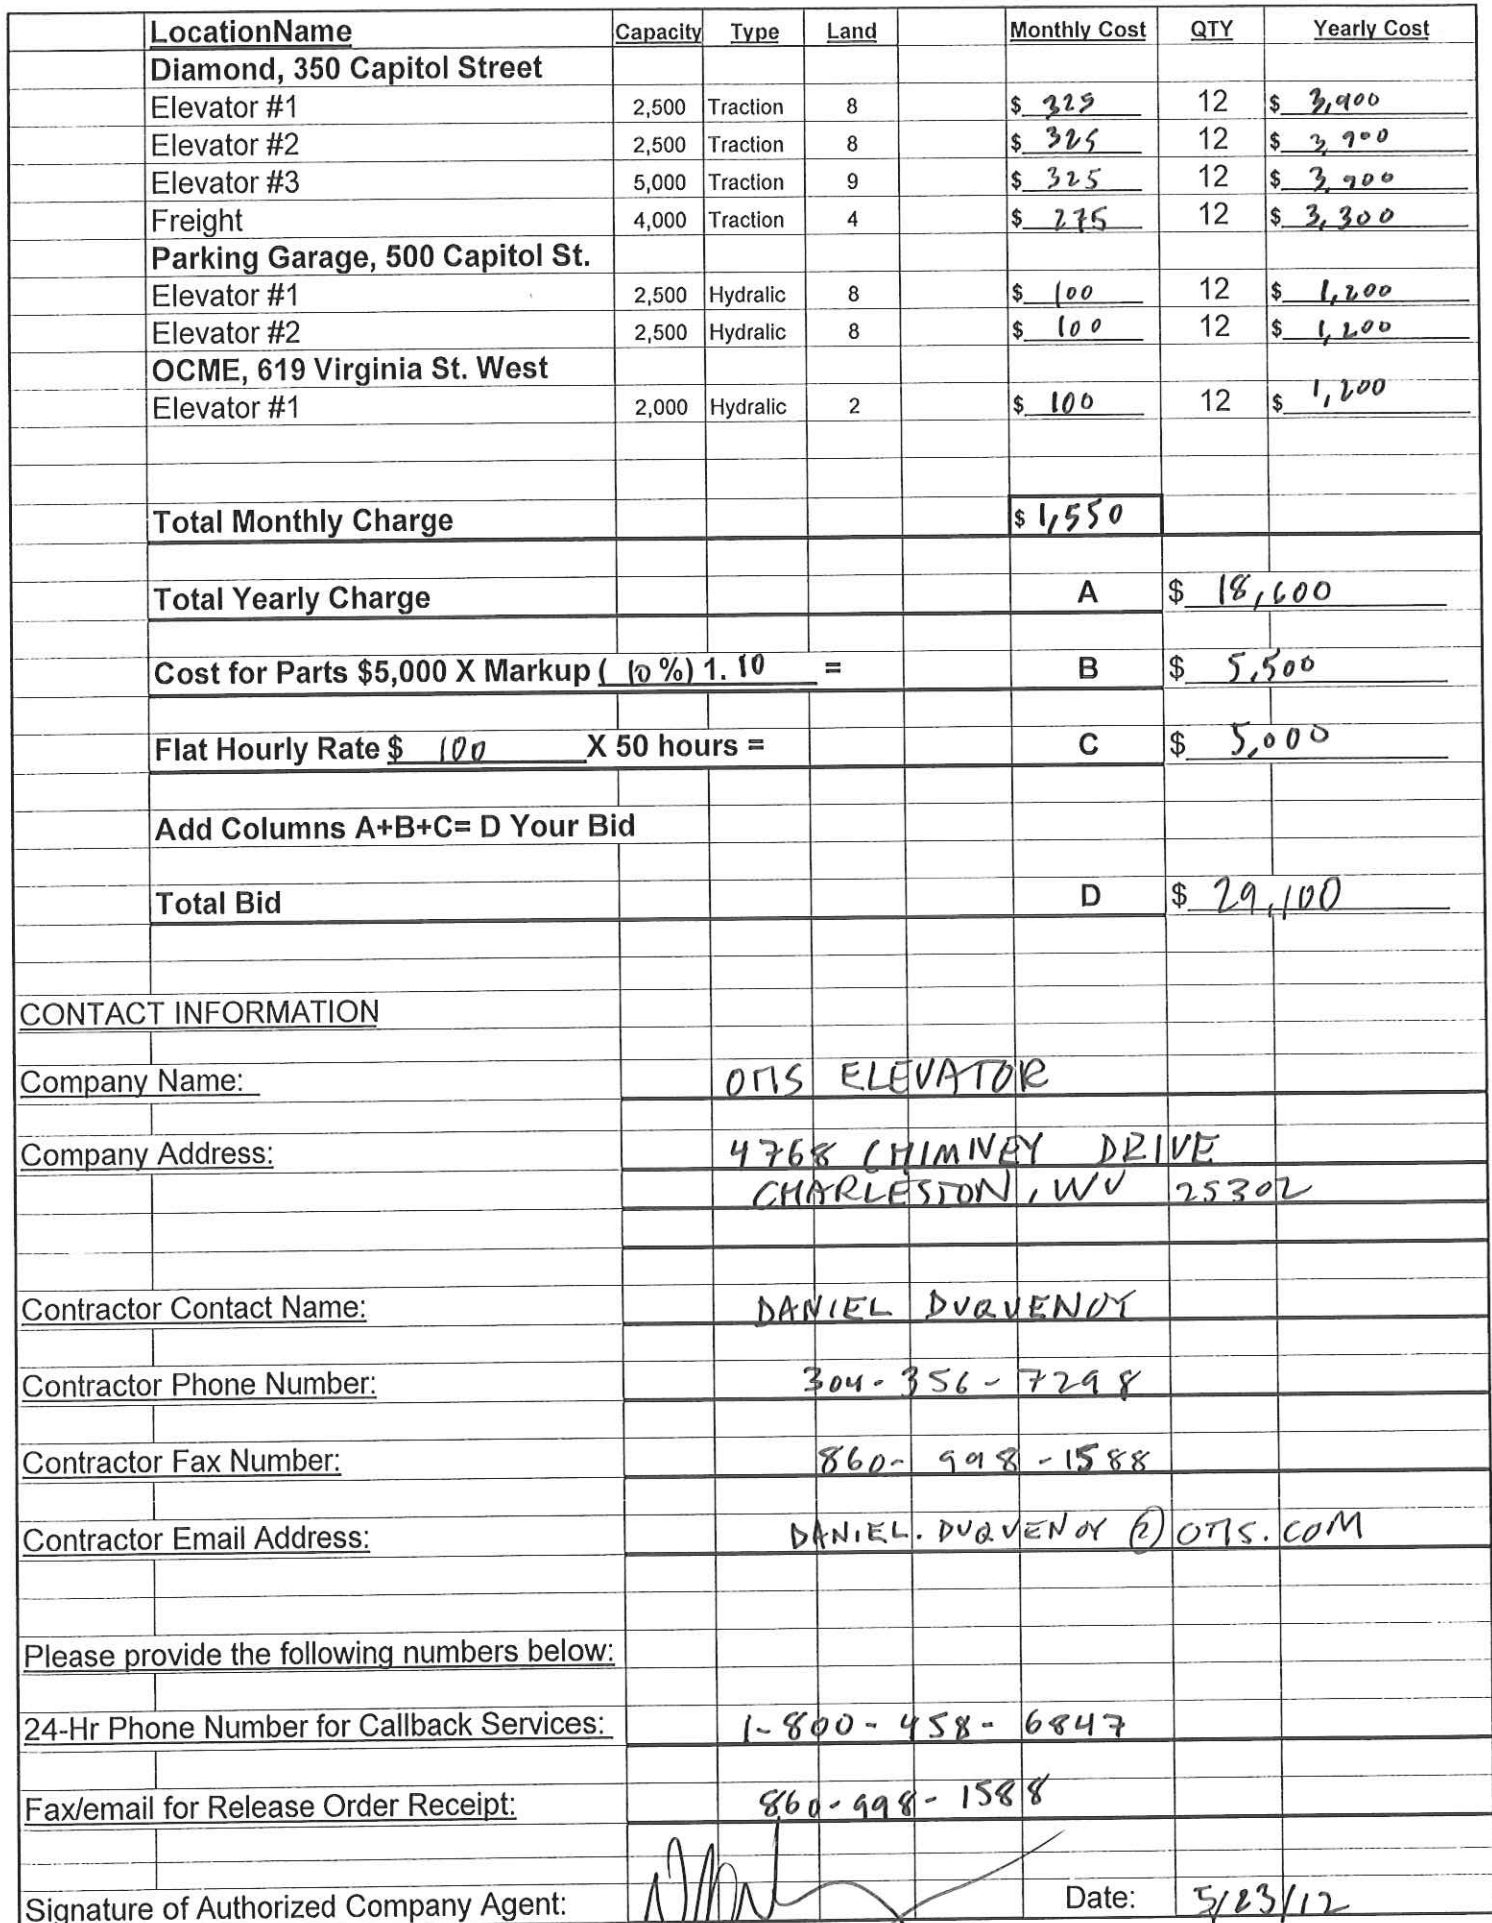 LocationName Capacity Type Land Monthly Cost QTY Yearly Cost
Diamond, 350 Capitol Street
Elevator #1 2,500 Traction 8 $ 325 12 $ 3,900
Elevator #2 2,500 Traction 8 $ 325 12 $ 3,900
Elevator #3 5,000 Traction 9 $ 325 12 $ 3,900
Freight 4,000 Traction 4 $ 275 12 $ 3,300
Parking Garage, 500 Capitol St.
Elevator #1 2,500 Hydralic 8 $ 100 12 $ 1,200
Elevator #2 2,500 Hydralic 8 $ 100 12 $ 1,200
OCME, 619 Virginia St. West
Elevator #1 2,000 Hydralic 2 $ 100 12 $ 1,200
Total Monthly Charge $ 1,550
Total Yearly Charge A $ 18,600
Cost for Parts $5,000 X Markup ( 10 %) 1.10 = B $ 5,500
Flat Hourly Rate $ 100 X 50 hours = C $ 5,000
Add Columns A+B+C= D Your Bid
Total Bid D $ 29,100
CONTACT INFORMATION
Company Name: OTIS ELEVATOR
Company Address: 4768 CHIMNEY DRIVE
CHARLESTON, WV 25302
Contractor Contact Name: DANIEL DUQUENOY
Contractor Phone Number: 304-356-7298
Contractor Fax Number: 860-998-1588
Contractor Email Address: DANIEL.DUQUENOY@OTIS.COM
Please provide the following numbers below:
24-Hr Phone Number for Callback Services: 1-800-458-6847
Fax/email for Release Order Receipt: 860-998-1588
Signature of Authorized Company Agent: Date: 5/23/12